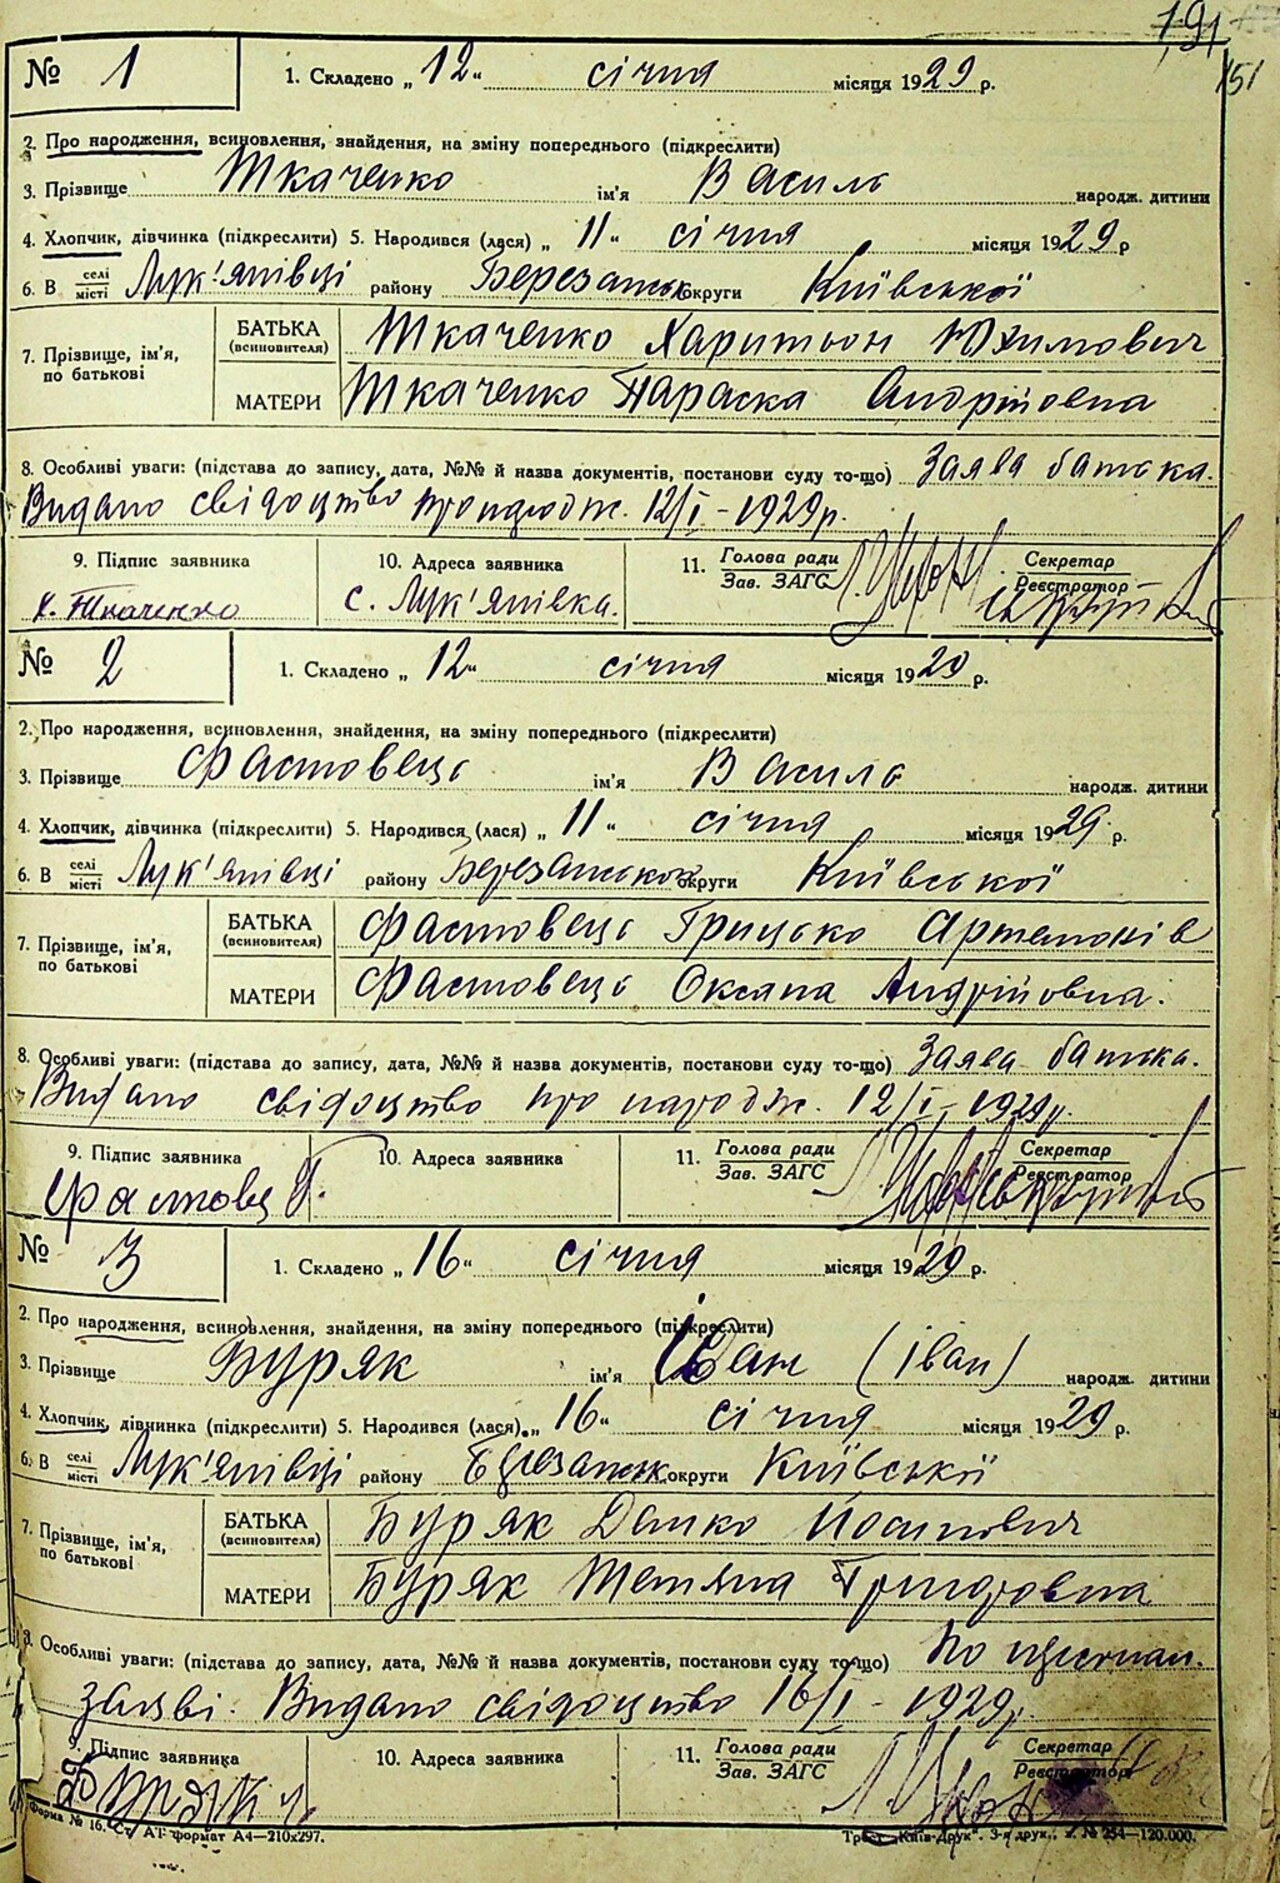 191
151
№ 1 1. Складено „12“ січня місяця 1929 р.
2. Про народження, всиновлення, знайдення, на зміну попереднього (підкреслити)
3. Прізвище Ткаченко ім'я Василь народж. дитини
4. Хлопчик, дівчинка (підкреслити) 5. Народився (лася) „11“ січня місяця 1929 р
6. В селі місті Лук'янівці району Березанськ округи Київської
7. Прізвище, ім'я, по батькові
БАТЬКА (всиновителя) Ткаченко Харитон Юхимович
МАТЕРИ Ткаченко Параска Андрійовна
8. Особливі уваги: (підстава до запису, дата, №№ й назва документів, постанови суду то-що) Заява батька.
Видано свідоцтво про народж. 12/I – 1929 р.
9. Підпис заявника 10. Адреса заявника 11. Голова ради Зав. ЗАГС Секретар Реєстратор
Х. Ткаченко с. Лук'янівка.
№ 2 1. Складено „12“ січня місяця 1929 р.
2. Про народження, всиновлення, знайдення, на зміну попереднього (підкреслити)
3. Прізвище Фастовець ім'я Василь народж. дитини
4. Хлопчик, дівчинка (підкреслити) 5. Народився (лася) „11“ січня місяця 1929. р.
6. В селі місті Лук'янівці району Березанськой округи Київської
7. Прізвище, ім'я, по батькові
БАТЬКА (всиновителя) Фастовець Грицько Артемонів
МАТЕРИ Фастовець Оксана Андрійовна.
8. Особливі уваги: (підстава до запису, дата, №№ й назва документів, постанови суду то-що) Заява батька.
Видано свідоцтво про народж. 12/I – 1929 р.
9. Підпис заявника 10. Адреса заявника 11. Голова ради Зав. ЗАГС Секретар Реєстратор
Фастовец Г.
№ 3 1. Складено „16“ січня місяця 1929 р.
2. Про народження, всиновлення, знайдення, на зміну попереднього (підкреслити)
3. Прізвище Буряк ім'я Іван (Іван) народж. дитини
4. Хлопчик, дівчинка (підкреслити) 5. Народився (лася) „16“ січня місяця 1929 р.
6. В селі місті Лук'янівці району Березанськ округи Київської
7. Прізвище, ім'я, по батькові
БАТЬКА (всиновителя) Буряк Данко Йосипович
МАТЕРИ Буряк Тетяна Григоровна
8. Особливі уваги: (підстава до запису, дата, №№ й назва документів, постанови суду то-що) По
заяві. Видано свідоцтво 16/I – 1929 р.
9. Підпис заявника 10. Адреса заявника 11. Голова ради Зав. ЗАГС Секретар Реєстратор
Буряк
Форма № 16. Ст. А1 формат А4—210х297. Трест „Київ-Друк“. 3-я друк., з. № 254—120.000.